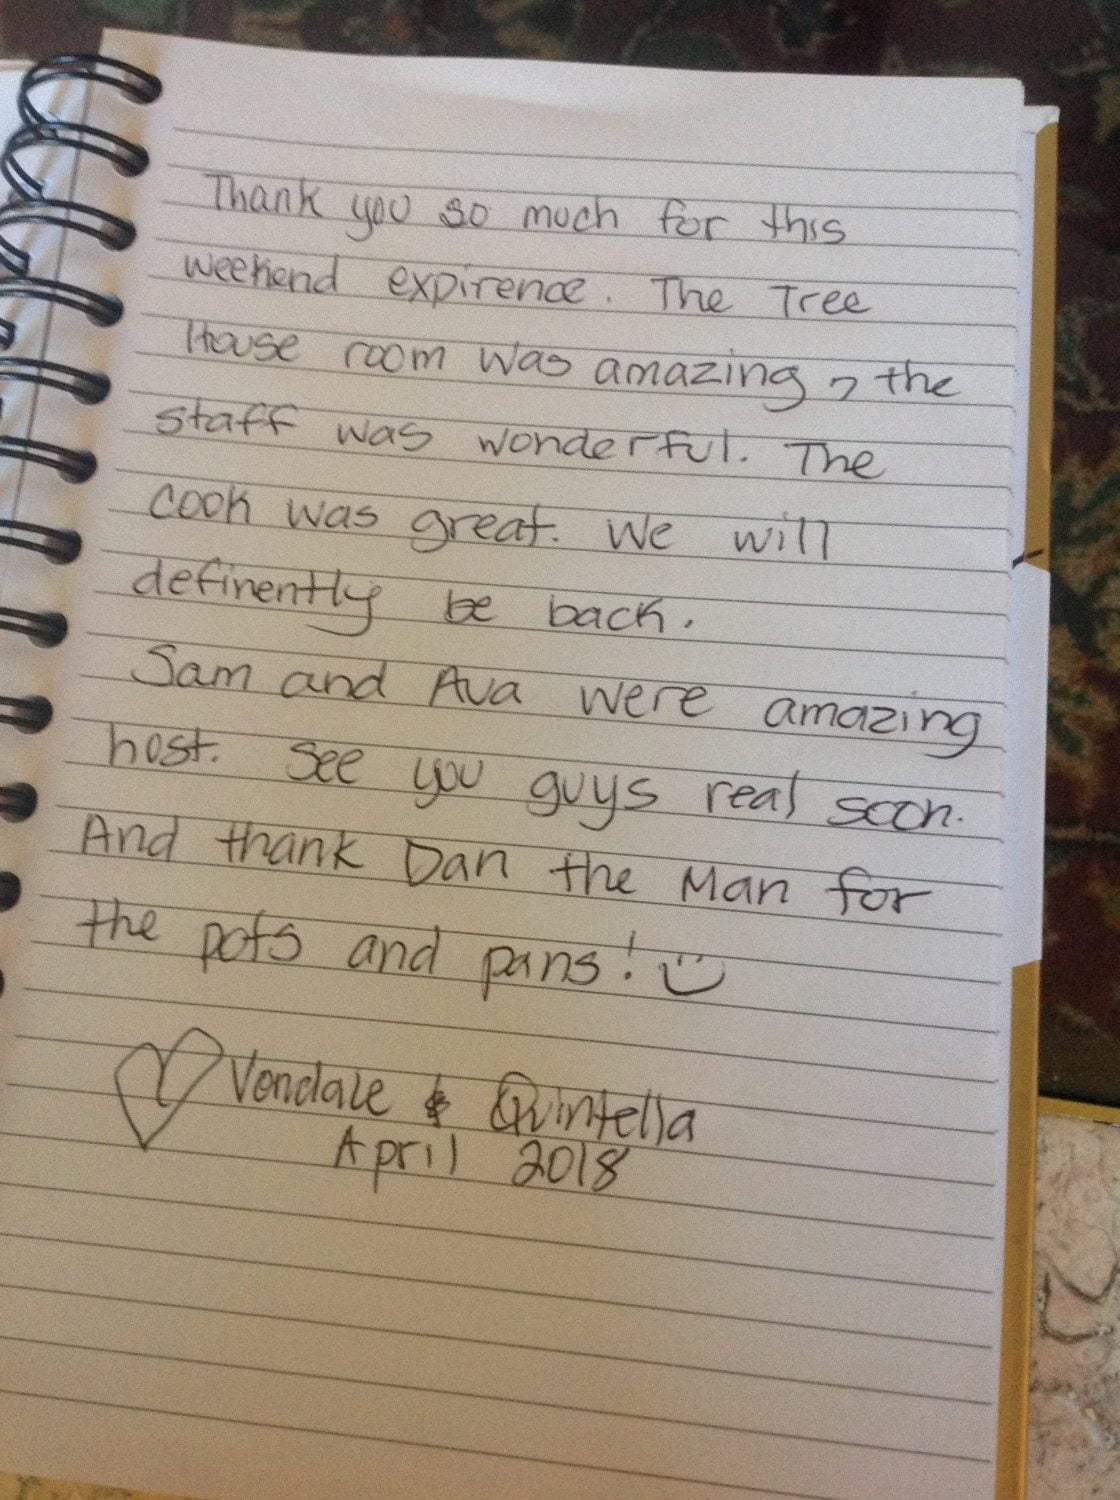 Thank you so much for this
weekend expirence. The Tree
House room was amazing, the
staff was wonderful. The
cook was great. We will
definently be back.
Sam and Ava were amazing
host. See you guys real soon.
And thank Dan the Man for
the pots and pans! :)
Vondale & Quintella
April 2018